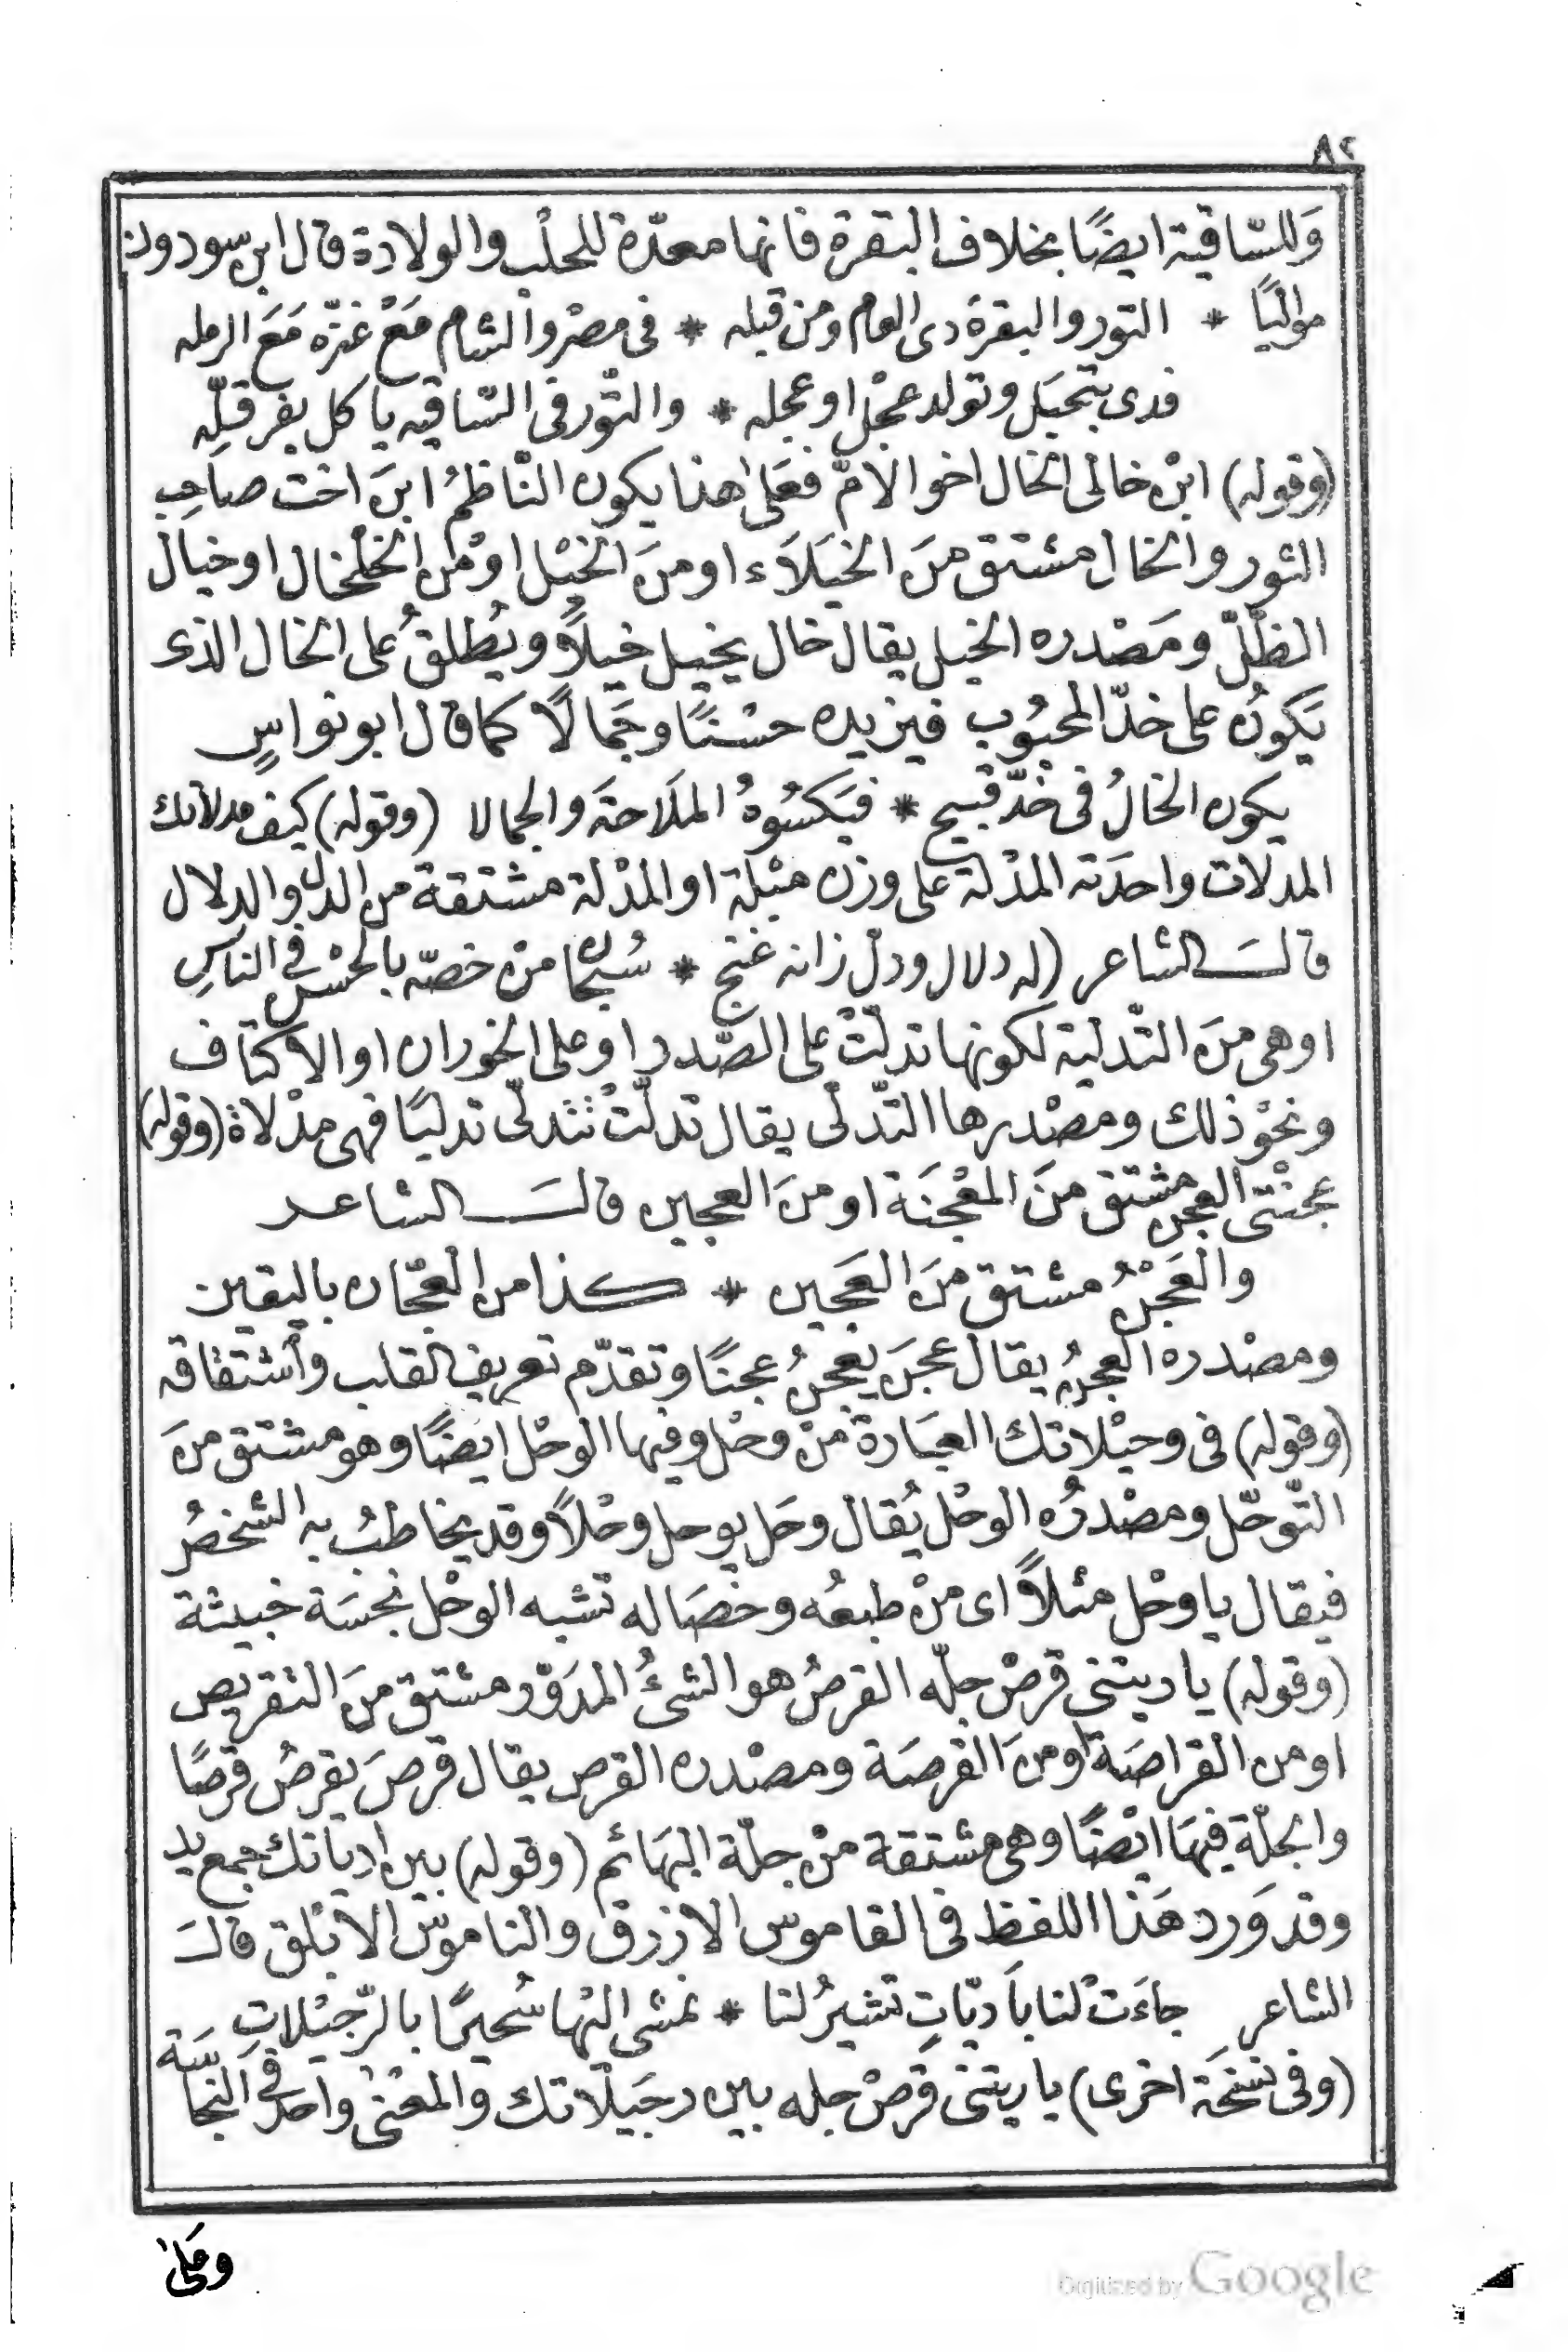 ٨٢
وَللسّاقية ايضًا بخلاف البقرة فانها معدّة للحلْب والولادة قال ابن سودون
مواليًا * التور والبقرة دى العام ومن قبله * فى مصْر والشام مَعْ غزّه مَعَ الرمله
فدى بتحبَل وتولد عجْل او عجله * والتّور فى السّاقيه ياكل بفرقلِّه
(وقوله) ابنْ خالى الخال اخو الامّ فعَلى هٰذا يكون النّاظمُ ابنَ اخت صاحِب
الثور والخال مشتق منَ الخيَلَاء او منَ الخيْل او مْن الخلْخال او خيال
الظلّ ومَصْدره الخيل يقال خال يخيل خيلاً ويُطلقُ على الخال الذى
يَكونُ على خدّ المحبُوب فيزيده حسْنًا وجَمالًا كما قال ابو نواسٍ
يكون الخالُ فى خدّ قبيح * فيَكسُوهُ الملَاحةَ والجمالا (وقوله) كيف مدلاتك
المدلات واحدَته المدْلة على وزن مبْلة او المدْلة مشتقة من الدل والدلال
قالَ الشاعر (له دلال ودلّ زانه غنج * سُبْحان منْ خصّه بالحسْن فى الناسِ
او هى منَ التّدلية لكونها تدلّتْ على الصّدر او على الخوران او الاكتاف
ونحْو ذلك ومصْدرها التّدلّى يقال تدلّتْ تتدلّى تدليًا فهى مدْلاة (وقوله)
عجنْتى العجن مشتق منَ المعْجنَة او منَ العجين قالَ الشاعر
والعَجْنُ مشتق منَ العَجين * كذا من العجّان باليقين
ومصْدره العجنُ يقال عجنَ يعْجنُ عجنًا وتقدّم تعريف القلب وأشتقاقه
(وقوله) فى وحيْلاتك العبَارة منْ وحْل وفيها الوحْل ايضًا وهو مشتق منَ
التّوحّل ومصْدرُه الوحْل يُقال وحَل يوحل وحْلاً وقد يخاطبُ به الشخصُ
فيقال يا وحْل مثلاً اى منْ طبعُه وخصَاله تشبه الوحْل نجسَة خبيثة
(وقوله) ياريتنى قرصْ جلّه القرصُ هو الشئُ المدَوّر مشتق منَ التقريص
او من القراصَة او منَ القرصَة ومصْدره القرص يقال قرصَ يقرصُ قرصًا
والجلّة فيهَا ايْضًا وهى مشتقة منْ جلّة البهَائم (وقوله) بين ادياتك جمع يد
وقد وَرد هَذا اللفظ فى القاموس الازرق والناموس الابْلق قالَ
الشاعر جاءَتْ لنا بآديّاتٍ تشيرُ لنا * نمشى اليْها سُحيرًا بالرّجيْلاتِ
(وفى نسْخَة اخرى) ياريتنى قرصْ جله بين رجَيلّاتك والمعْنىٰ واحد فى النجاسَة
وعَلىٰ
Digitized by Google